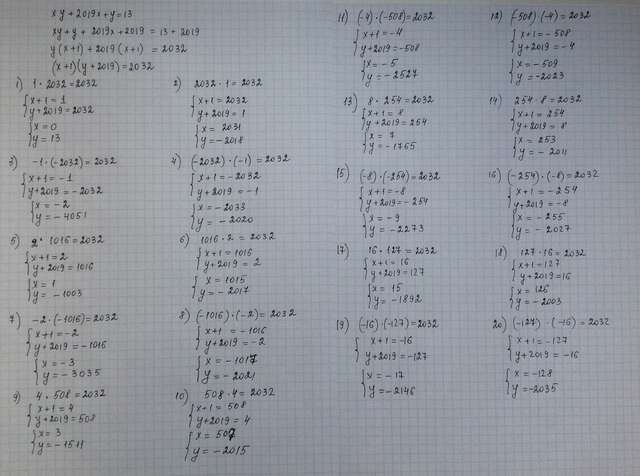 xy + 2019x + y = 13
xy + y + 2019x + 2019 = 13 + 2019
y(x+1) + 2019(x+1) = 2032
(x+1)(y+2019) = 2032
1) 1 · 2032 = 2032
x+1 = 1
y+2019 = 2032
x = 0
y = 13
2) 2032 · 1 = 2032
x+1 = 2032
y+2019 = 1
x = 2031
y = -2018
3) -1 · (-2032) = 2032
x+1 = -1
y+2019 = -2032
x = -2
y = -4051
4) (-2032) · (-1) = 2032
x+1 = -2032
y+2019 = -1
x = -2033
y = -2020
5) 2 · 1016 = 2032
x+1 = 2
y+2019 = 1016
x = 1
y = -1003
6) 1016 · 2 = 2032
x+1 = 1016
y+2019 = 2
x = 1015
y = -2017
7) -2 · (-1016) = 2032
x+1 = -2
y+2019 = -1016
x = -3
y = -3035
8) (-1016) · (-2) = 2032
x+1 = -1016
y+2019 = -2
x = -1017
y = -2021
9) 4 · 508 = 2032
x+1 = 4
y+2019 = 508
x = 3
y = -1511
10) 508 · 4 = 2032
x+1 = 508
y+2019 = 4
x = 507
y = -2015
11) (-4) · (-508) = 2032
x+1 = -4
y+2019 = -508
x = -5
y = -2527
12) (-508) · (-4) = 2032
x+1 = -508
y+2019 = -4
x = -509
y = -2023
13) 8 · 254 = 2032
x+1 = 8
y+2019 = 254
x = 7
y = -1765
14) 254 · 8 = 2032
x+1 = 254
y+2019 = 8
x = 253
y = -2011
15) (-8) · (-254) = 2032
x+1 = -8
y+2019 = -254
x = -9
y = -2273
16) (-254) · (-8) = 2032
x+1 = -254
y+2019 = -8
x = -255
y = -2027
17) 16 · 127 = 2032
x+1 = 16
y+2019 = 127
x = 15
y = -1892
18) 127 · 16 = 2032
x+1 = 127
y+2019 = 16
x = 126
y = -2003
19) (-16) · (-127) = 2032
x+1 = -16
y+2019 = -127
x = -17
y = -2146
20) (-127) · (-16) = 2032
x+1 = -127
y+2019 = -16
x = -128
y = -2035